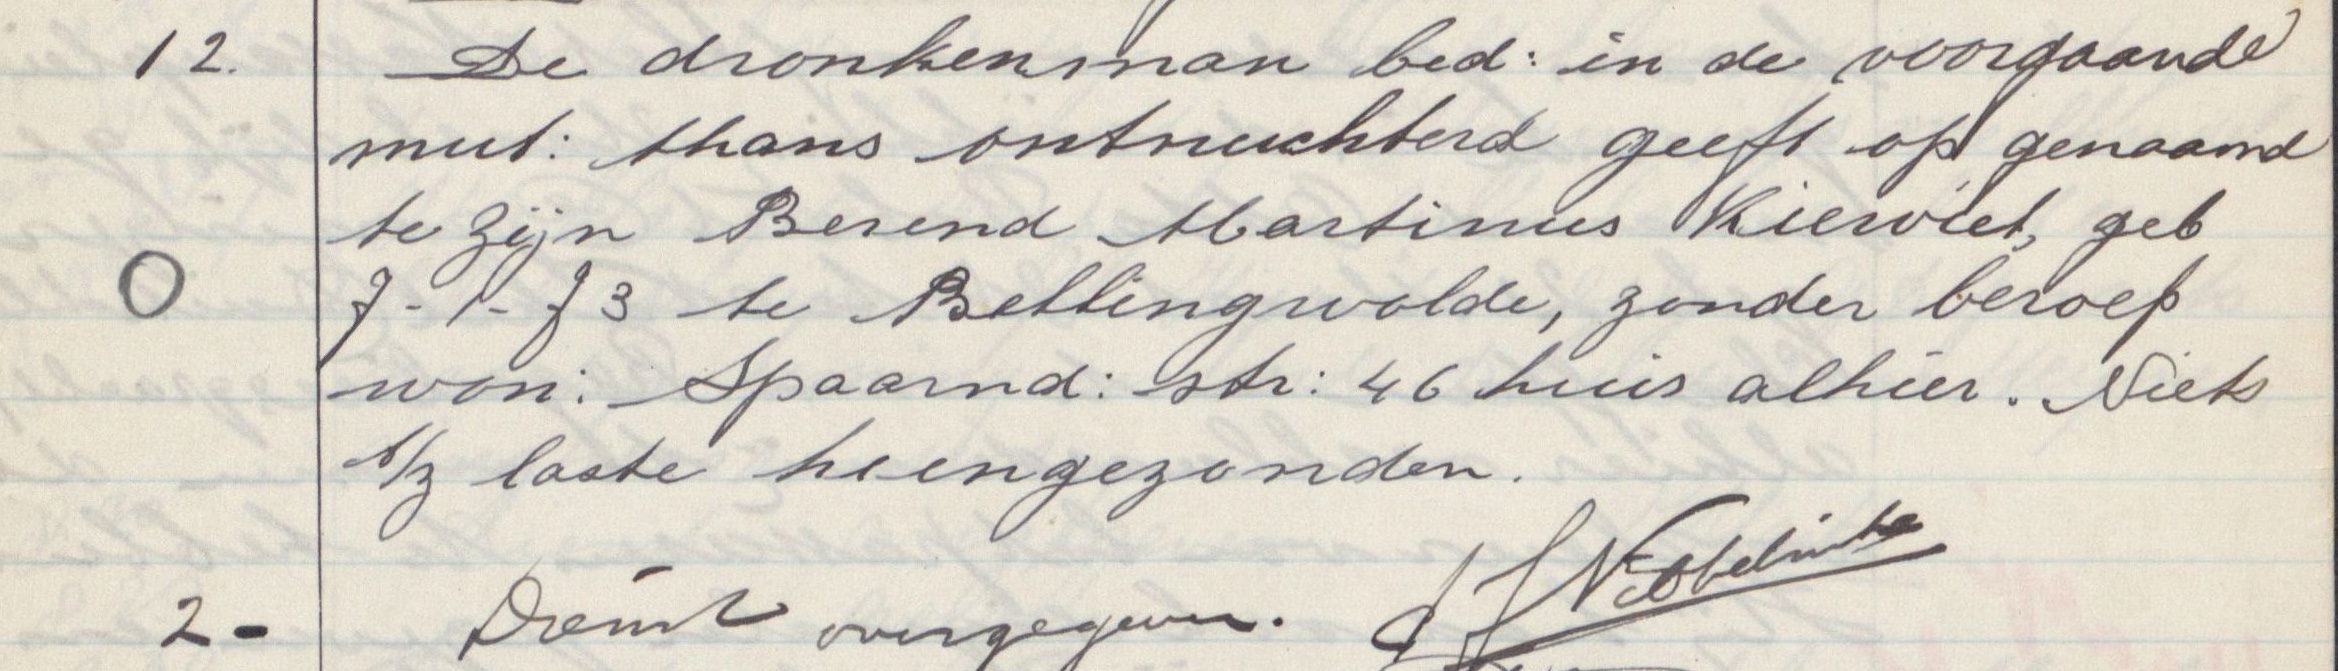 12. De dronkenman bed: in de voorgaande
mut: thans ontnuchterd geeft op genaamd
te zijn Berend Martinus Kierviet, geb
O 7-1-73 te Bellingwolde, zonder beroep
won: Spaarnd: str: 46 huis alhier. Niets
t/z laste heengezonden.
2- Dienst overgegeven.